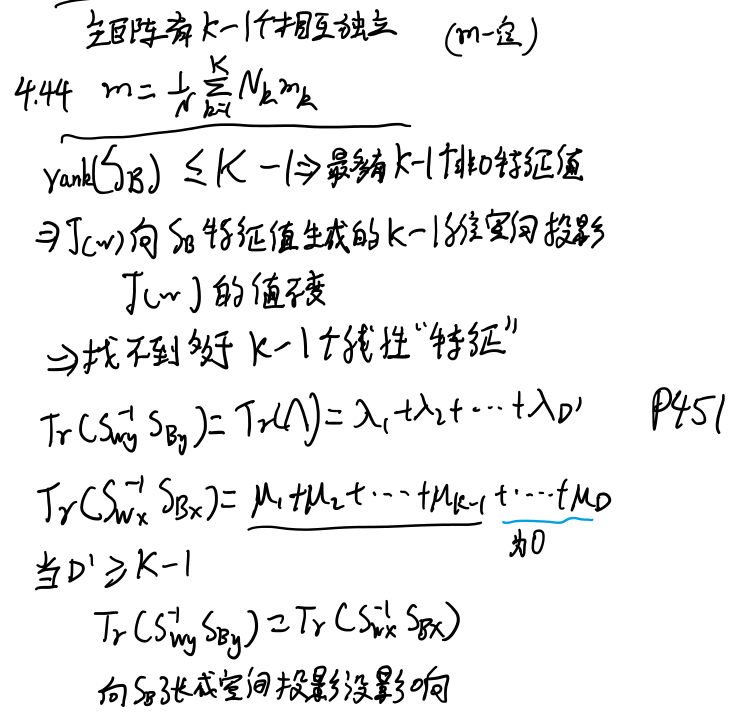 矩阵有K-1个相互独立 (m一定)
4.44 m = \frac{1}{N} \sum_{k=1}^{K} N_k m_k
rank(S_B) ≤ K-1 ⇒ 最多有K-1个非0特征值
⇒ J(w)向S_B特征值生成的K-1维空间投影
J(w)的值不变
⇒ 找不到多于K-1个线性“特征”
Tr(S_{wy}^{-1} S_{By}) = Tr(Λ) = λ_1+λ_2+⋯+λ_{D'} P451
Tr(S_{Wx}^{-1} S_{Bx}) = μ_1+μ_2+⋯+μ_{K-1}+⋯+μ_D
为0
当D' ≥ K-1
Tr(S_{wy}^{-1} S_{By}) = Tr(S_{wx}^{-1} S_{Bx})
向S_B张成空间投影没影响